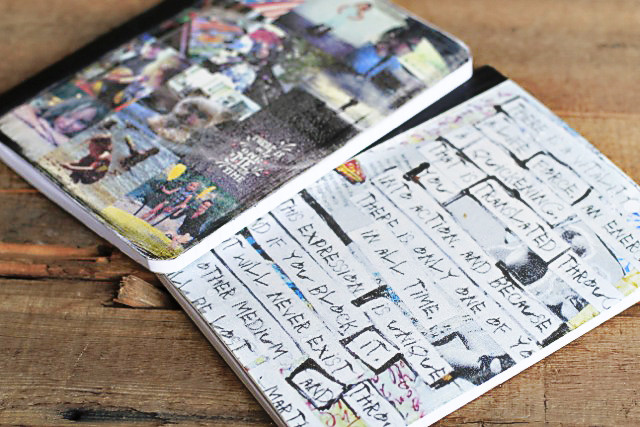 LIFE FORCE, AN ENER
QUICKENING
THAT IS TRANSLATED THROU
YOU
INTO ACTION, AND BECAUSE
THERE IS ONLY ONE OF YO
IN ALL TIME
THIS EXPRESSION IS UNIQUE
ND IF YOU BLOCK IT.
IT WILL NEVER EXIST THROU
OTHER MEDIUM AND
LL BE LOST
MARTH